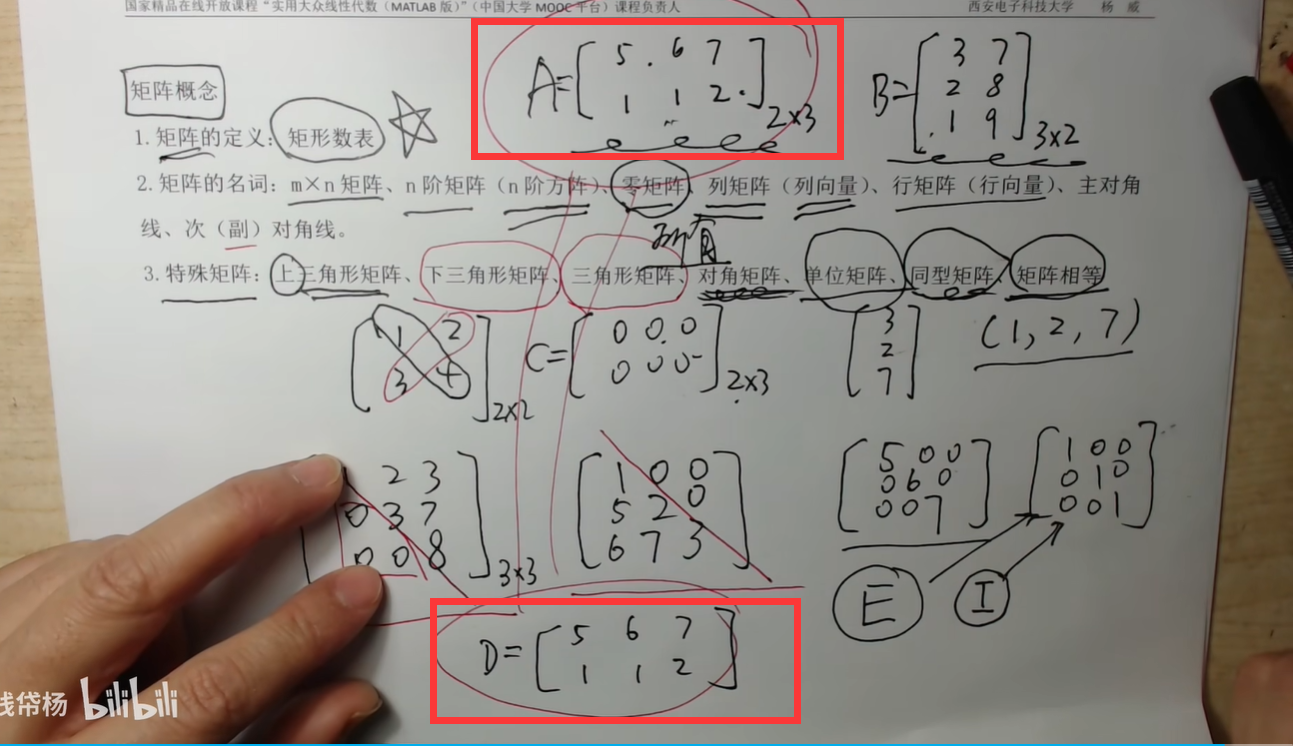 国家精品在线开放课程“实用大众线性代数（MATLAB 版）”（中国大学 MOOC 平台）课程负责人 西安电子科技大学 杨 威
矩阵概念
A=[5 6 7
1 1 2]2×3
B=[3 7
2 8
1 9]3×2
1. 矩阵的定义：矩形数表
2. 矩阵的名词：m×n 矩阵、n 阶矩阵（n 阶方阵）、零矩阵、列矩阵（列向量）、行矩阵（行向量）、主对角
线、次（副）对角线。
3. 特殊矩阵：上三角形矩阵、下三角形矩阵、三角形矩阵、对角矩阵、单位矩阵、同型矩阵、矩阵相等
[1 2
3 4]2×2
C=[0 0 0
0 0 0]2×3
[3
2
7]
(1, 2, 7)
2 3
0 3 7
0 0 8]3×3
[1 0 0
5 2 0
6 7 3]
[5 0 0
0 6 0
0 0 7]
[1 0 0
0 1 0
0 0 1]
E I
D=[5 6 7
1 1 2]
线帒杨 bilibili